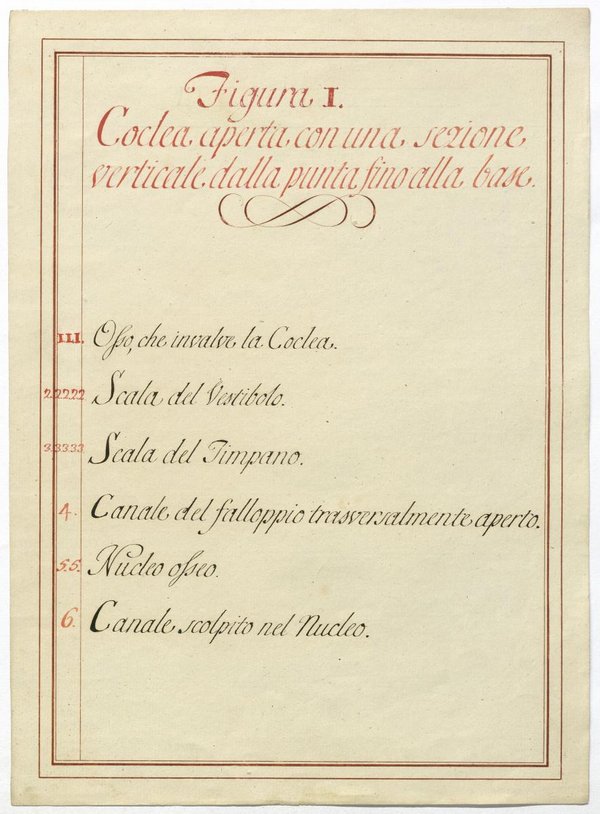 Figura I.
Coclea aperta con una sezione
verticale dalla punta fino alla base.
1.1.1. Osso, che involve la Coclea.
2.2.2.2.2 Scala del Vestibolo.
3.3.3.3.3 Scala del Timpano.
4. Canale del falloppio trasversalmente aperto.
5.5. Nucleo osseo.
6. Canale scolpito nel Nucleo.